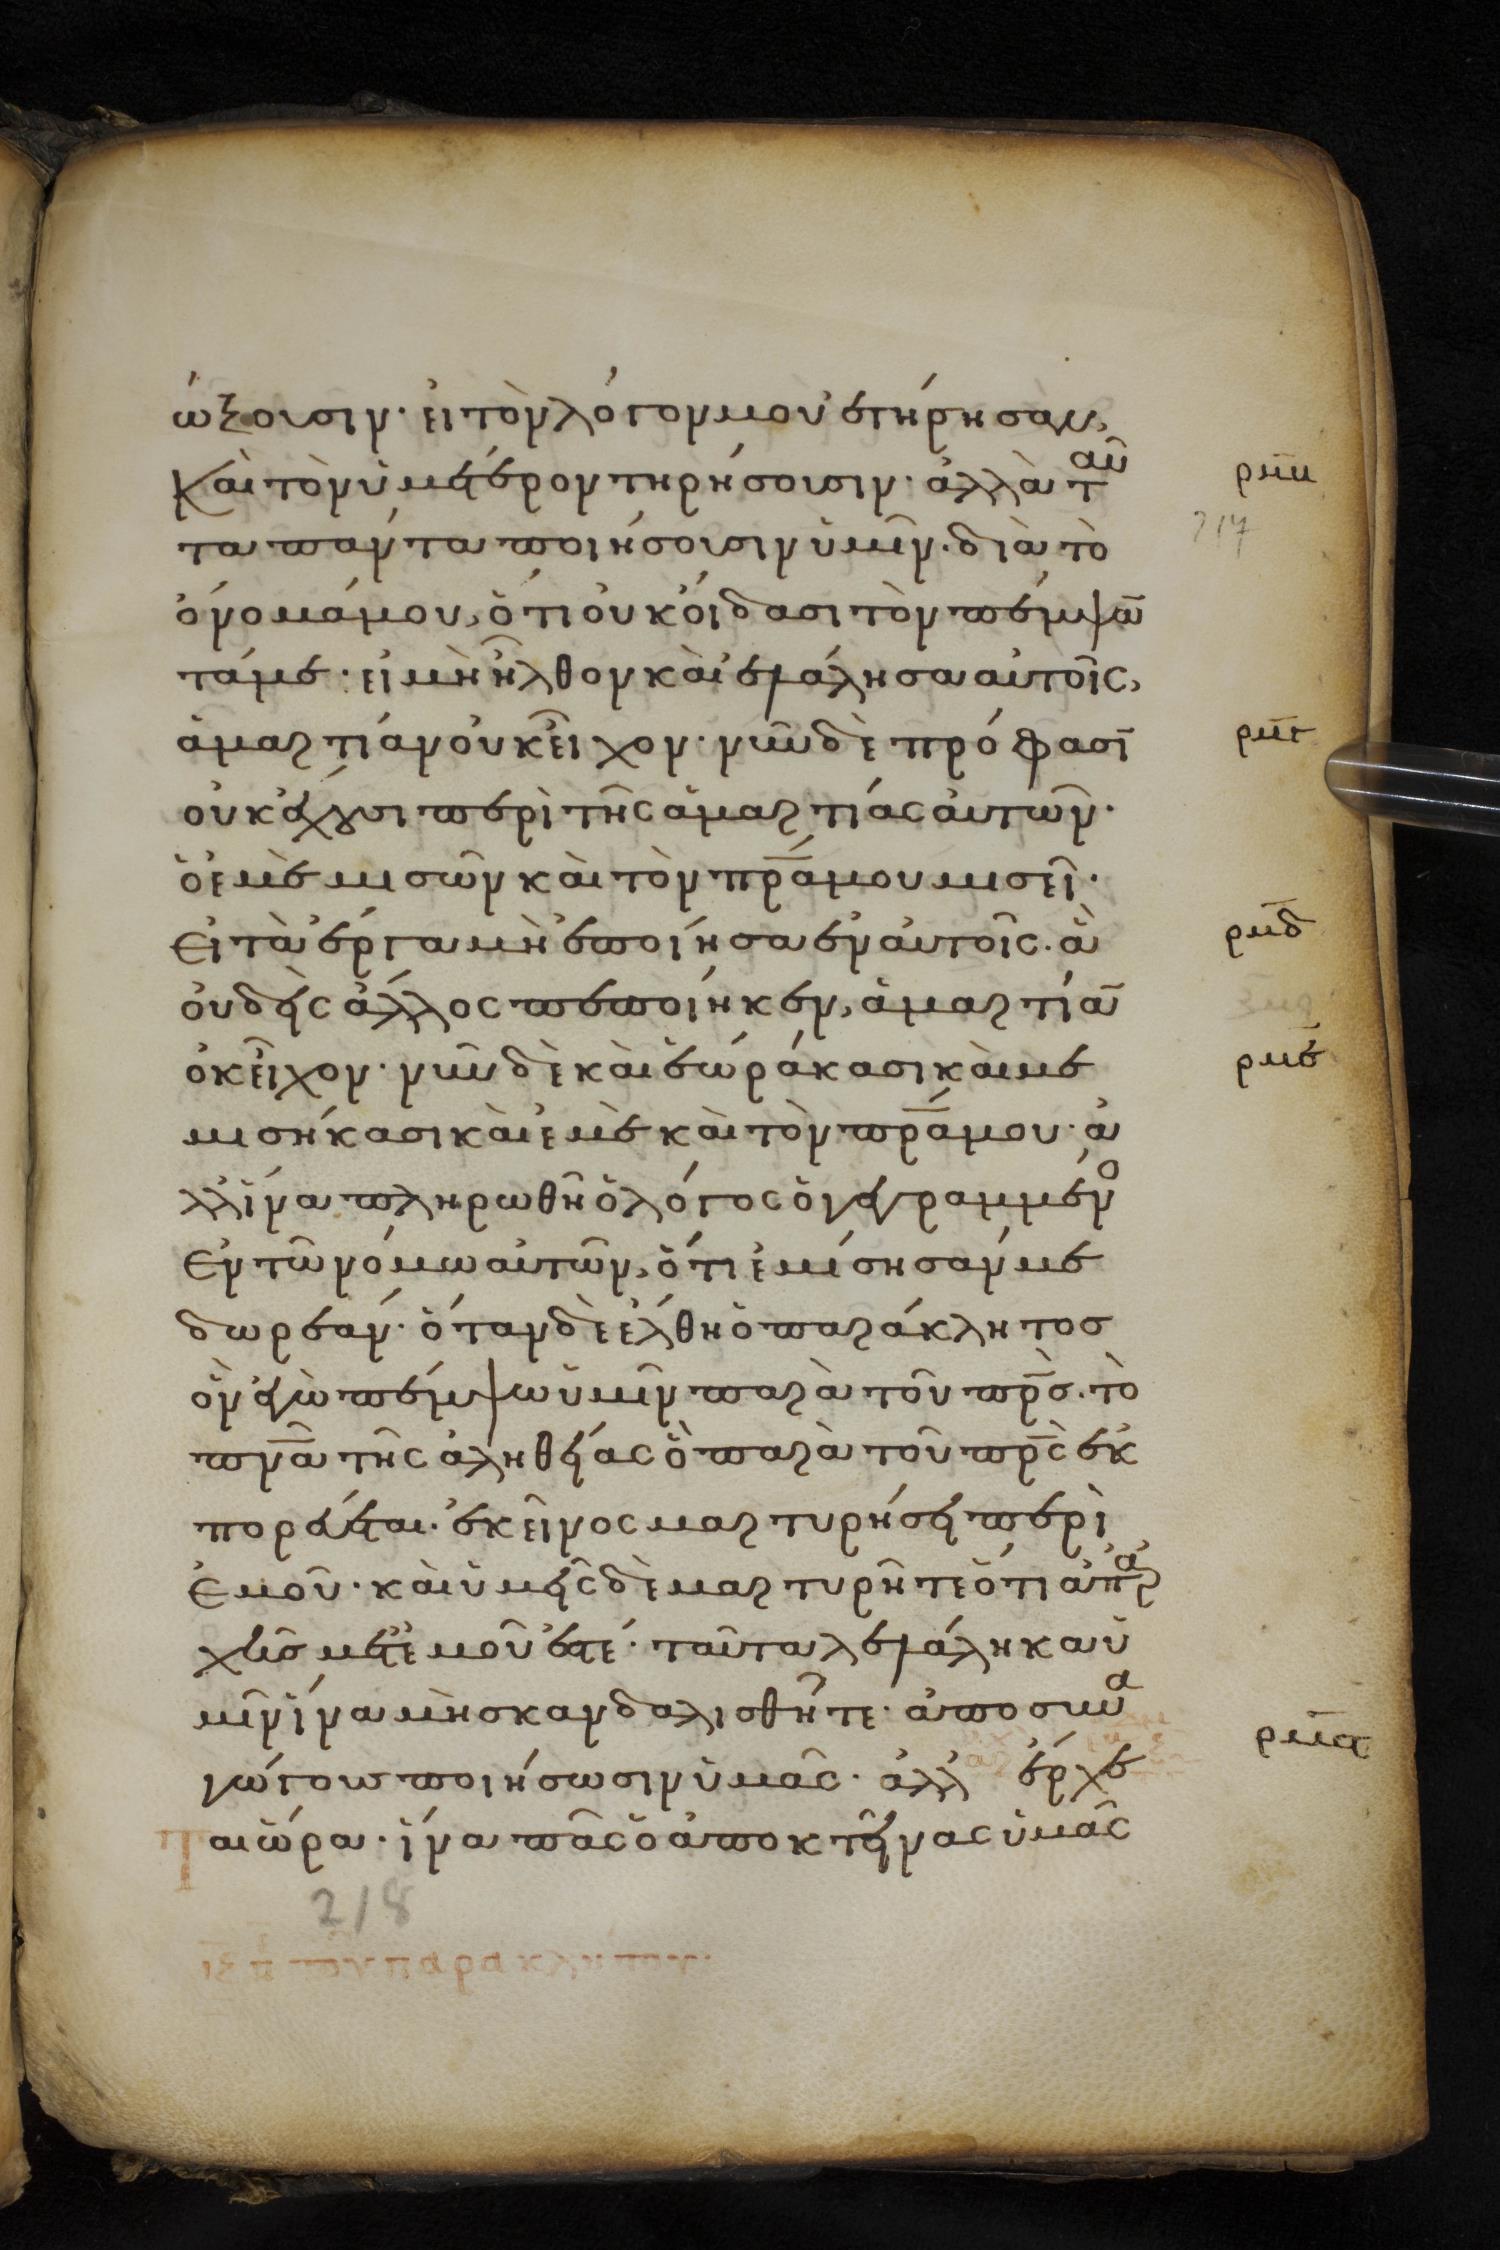 ώξουσιν· εἰ τὸν λόγον μου ἐτήρησαν,
καὶ τὸν ὑμέτερον τηρήσουσιν· ἀλλὰ ταῦ
τα πάντα ποιήσουσιν ὑμῖν· διὰ τὸ
ὄνομά μου, ὅτι οὐκ οἴδασι τὸν πέμψα̅
τά με· εἰ μὴ ἦλθον καὶ ἐλάλησα αὐτοῖς,
ἁμαρτίαν οὐκ εἶχον· νῦν δὲ πρόφασῑ
οὐκ ἔχουσι περὶ τῆς ἁμαρτίας αὐτῶν·
ὁ ἐμὲ μισῶν καὶ τὸν πρ̅α μου μισεῖ·
Εἰ τὰ ἔργα μὴ ἐποίησα ἐν αὐτοῖς· ἃ
οὐδεὶς ἄλλος πεποίηκεν, ἁμαρτία̅
ὀκ εἶχον· νῦν δὲ καὶ ἑωράκασι καὶ με
μισήκασι καὶ ἐμὲ καὶ τὸν πρ̅α μου· ἀ
λλ' ἵνα πληρωθῆ ὁ λόγος ὁ γεγραμμένο
Ἐν τῶ νόμω αὐτῶν, ὅτι ἐμίσησάν με
δωρεάν· ὅταν δὲ ἔλθη ὁ παράκλητοσ
ὃν ἐγὼ πέμψω ὑμῖν παρὰ τοῦ πρ̅σ· τὸ
πν̅α τῆς ἀληθείας ὃ παρὰ τοῦ πρ̅ς ἐκ
πορεύεται· ἐκεῖνος μαρτυρήσει περὶ
Ἐμοῦ· καὶ ὑμεῖς δὲ μαρτυρῆτε ὅτι ἀπ' ἀρ
χῆσ μετ' ἐμοῦ ἐστέ· ταῦτα λελάληκα ὑ
μῖν ἵνα μὴ σκανδαλισθῆτε· ἀποσυνα
γώγους ποιήσωσιν ὑμᾶς· ἀλλ' ἔρχε
αι ὥρα· ἵνα πᾶς ὁ ἀποκτείνας ὑμᾶς
Τ
218
τοῦ παρακλήτου·
ρμγ
ρμδ
217